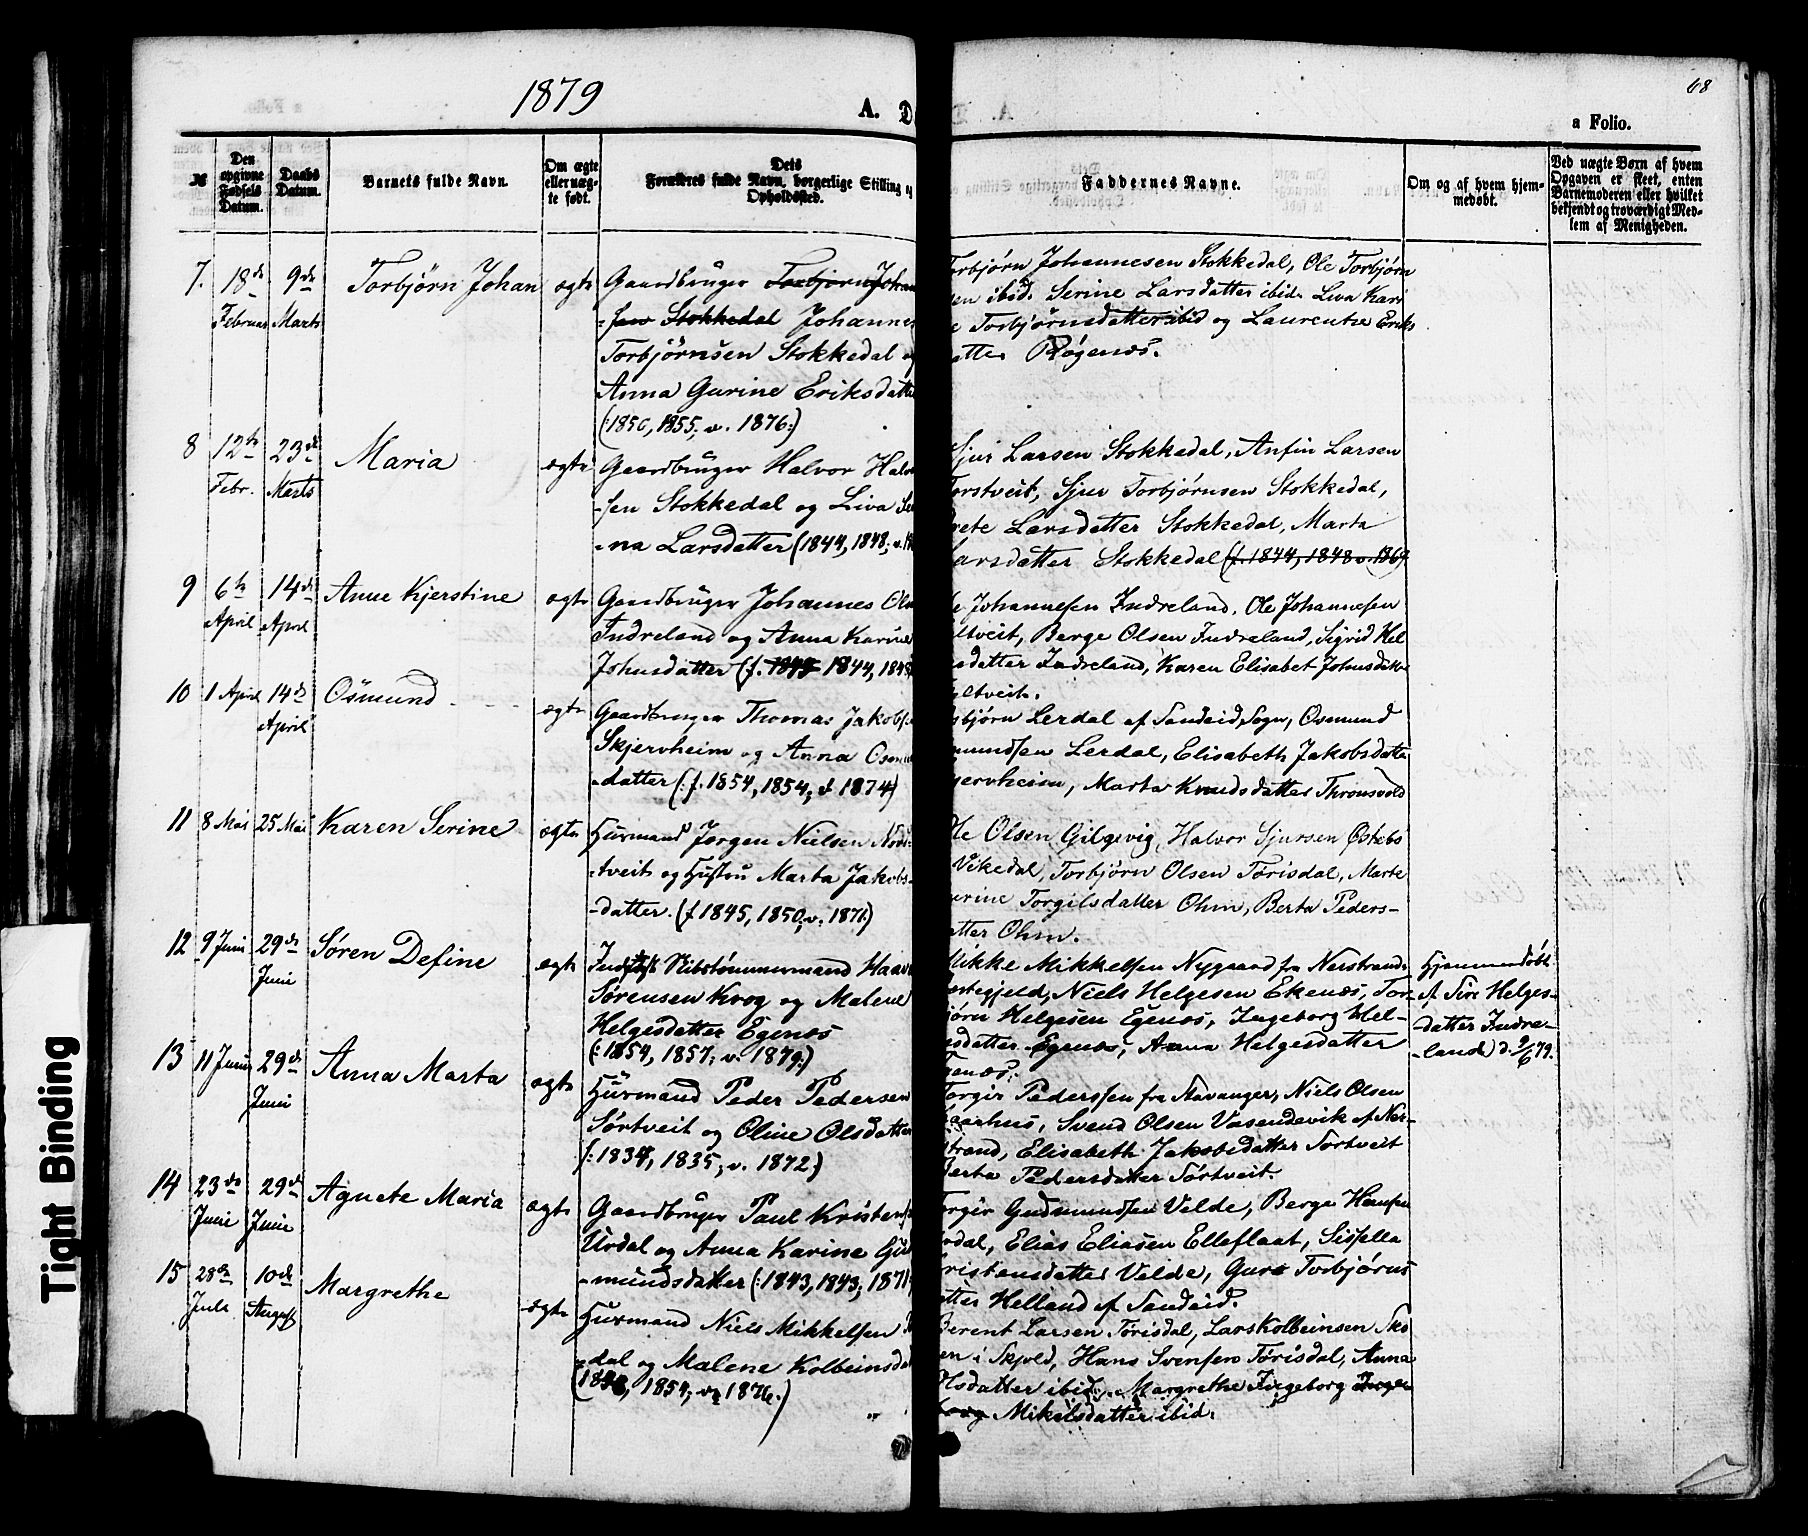 1879
A. D
68
a Folio.
№
Den opgivne Fødsels Datum.
Daabs Datum.
Barnets fulde Navn.
Om ægte eller uægte født.
Dets Forældres fulde Navn, borgerlige Stilling og Opholdssted.
Faddernes Navne.
Om og af hvem hjemmedøbt.
Ved uægte Børn af hvem Opgaven er skeet, enten Barnemoderen eller hvilket bekjendt og troværdigt Medlem af Menigheden.
7. 18de Februar 9de Marts Torbjørn Johan ægte
Gaardbruger Torbjørn Johan
-sen Stokkedal Johannes
Torbjørnsen Stokkedal og
Anna Gurine Eriksdatte
(:1850, 1855, v. 1876:)
Torbjørn Johannesen Stokkedal, Ole Torbjørn
sen ibid. Serine Larsdatter ibid. Liva Kari
e Torbjørnsdatter ibid og Laurentze Eriks
datter Røgenæs.
8 12te Febr. 23de Marts Maria ægte
Gaardbruger Halvor Halvor
-sen Stokkedal og Liva Se
-na Larsdatter (1844, 1848; v. 18
Sjur Larsen Stokkedal, Anfin Larsen
Torstveit, Sjur Torbjørnsen Stokkedal,
Grete Larsdatter Stokkedal, Marta
Larsdatter Stokkedal (f. 1844, 1848 v. 1869)
9 6te April 14de April Anne Kjerstine ægte
Gaardbruger Johannes Ols
Indreland og Anna Karine
Johnsdatter (f. 1844 1844, 1848
e Johannesen Indreland, Ole Johannesen
ltveit, Berge Olsen Indreland, Sigrid Hel
sdatter Indreland, Karen Elisabet Johnsdatte
ltveit.
10 1 April 14de April Osmund ægte
Gaardbruger Thomas Jakobse
Skjervheim og Anna Osmu
-datter (:f. 1854, 1854, v 1874)
sbjørn Lerdal af Sandeid Sogn, Osmund
mundsen Lerdal, Elisabeth Jakobsdatte
jervheim, Marta Knudsdatter Thronsvold
11 8 Mai 25 Mai Karen Serine ægte
Husmand Jørgen Nielsen Nord
-tveit og Hustru Marta Jakobs-
-datter. (f 1845, 1850, v. 1871.)
Ole Olsen Gilgevig, Halvor Sjursen Østebø
Vikedal, Torbjørn Olsen Tørisdal, Marte
urine Torgilsdatter Ohm, Berta Peders-
atter Ohm.
12 9 Juni 29de Juni Søren Define ægte
Inds. Ribstømmermand Haav
Sørensen Krog og Malene
Helgesdatter Egenæs
(:1854, 1857, v. 1879:)
Mikke Mikkelsen Nygaard fra Nærstrands
æstegjeld, Niels Helgesen Ekenæs, Tor-
bjørn Helgesen Egenæs, Ingeborg Hel-
sdatter Egenæs, Anna Helgesdatter
genæs.
Hjemmedøbt
af Siri Helges-
-datter Indre-
-land d. 9/6 79.
13 11 Juni 29de Juni Anna Marta ægte
Husmand Peder Pedersen
Sørtveit og Oline Olsdatter
f: 1834, 1835, v. 1872)
Torgir Pederssen fra Stavanger, Niels Olsen
aarhus, Svend Olsen Vasendevik af Nær-
strand, Elisabeth Jakobsdatter Sørtveit
Berta Pedersdatter Sørtveit.
14 23de Juni 29de Juni Agnete Maria ægte
Gaardbruger Paul Kristens
Urdal og Anna Karine Gud
-mundsdatter (:1843, 1843; 1871
Torgir Gudmundsen Velde, Berge Hansen
rdal, Elias Eliasen Elleflaat, Sissella
ristensdatter Velde, Guro Torbjørns
datter Helland af Sandeid.
15 28de Juli 10de August Margrethe ægte
Husmand Niels Mikkelsen
-dal og Malene Kolbeinsda
1854, v. 1876.)
Berent Larsen Tørisdal, Lars Kolbeinsen Sko
en i Skjold, Hans Svensen Tørisdal, Anna
Olsdatter ibid, Margrethe Ingeborg Inge
borg Mikelsdatter ibid.
Tight Binding